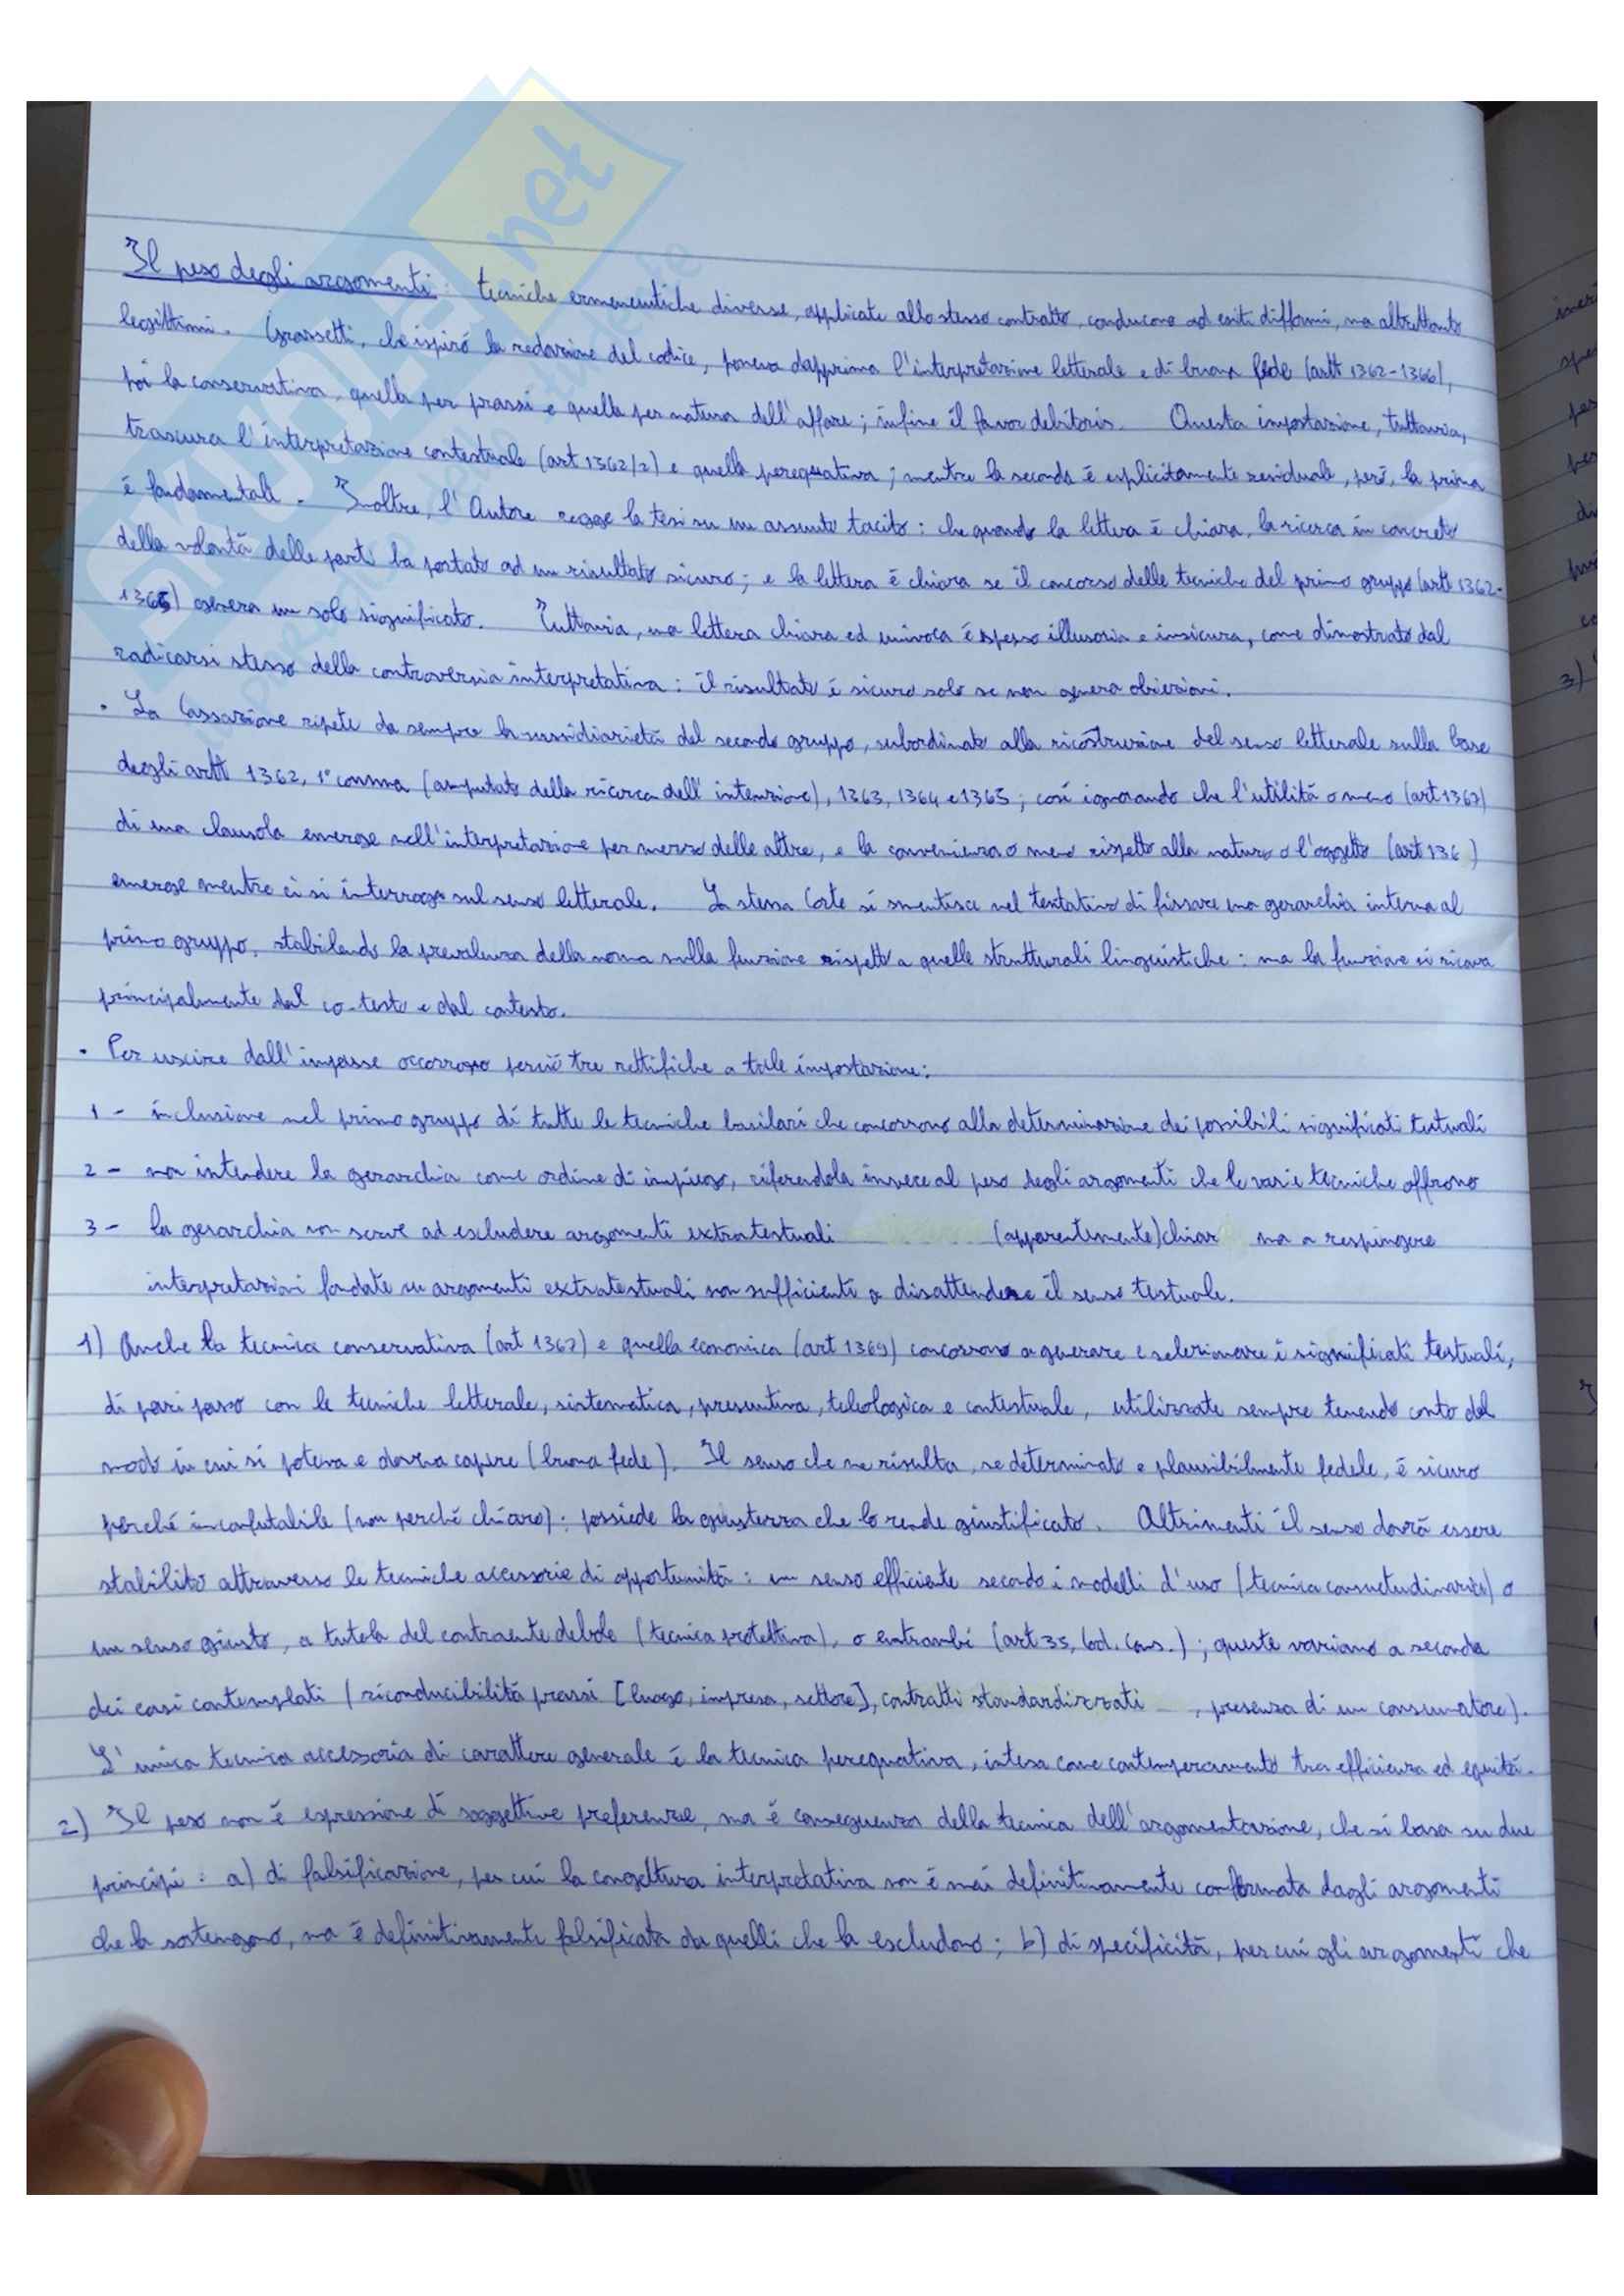 SKUOLA.net
Il peso degli argomenti: tecniche ermeneutiche diverse, applicate allo stesso contratto, conducono ad esiti difformi, ma altrettanto
legittimi. Grassetti, che ispirò la redazione del codice, poneva dapprima l'interpretazione letterale e di buona fede (artt 1362-1366),
poi la conservativa, quella per prassi e quella per natura dell'affare; infine il favor debitoris. Questa impostazione, tuttavia,
trascura l'interpretazione contestuale (art 1362/2) e quella perequativa; mentre la seconda è esplicitamente residuale, però, la prima
è fondamentale. Inoltre, l'Autore regge la tesi su un assunto tacito: che quando la lettera è chiara, la ricerca in concreto
della volontà delle parti ha portato ad un risultato sicuro; e la lettera è chiara se il concorso delle tecniche del primo gruppo (artt 1362-
1365) genera un solo significato. Tuttavia, una lettera chiara ed univoca è spesso illusoria e insicura, come dimostrato dal
radicarsi stesso della controversia interpretativa: il risultato è sicuro solo se non genera obiezioni.
• La Cassazione ripete da sempre la sussidiarietà del secondo gruppo, subordinato alla ricostruzione del senso letterale sulla base
degli artt 1362, 1° comma (amputato della ricerca dell'intenzione), 1363, 1364 e 1365; così ignorando che l'utilità o meno (art 1367)
di una clausola emerge nell'interpretazione per mezzo delle altre, e la convenienza o meno rispetto alla natura o l'oggetto (art 136 )
emerge mentre ci si interroga sul senso letterale. La stessa Corte si smentisce nel tentativo di fissare una gerarchia interna al
primo gruppo, stabilendo la prevalenza della norma sulla funzione rispetto a quelle strutturali linguistiche: ma la funzione si ricava
principalmente dal co-testo e dal contesto.
• Per uscire dall'impasse occorrono perciò tre rettifiche a tale impostazione:
1 - inclusione nel primo gruppo di tutte le tecniche basilari che concorrono alla determinazione dei possibili significati testuali
2 - non intendere la gerarchia come ordine di impiego, riferendola invece al peso degli argomenti che le varie tecniche offrono
3 - la gerarchia non serve ad escludere argomenti extratestuali (apparentemente) chiar ma a respingere
interpretazioni fondate su argomenti extratestuali non sufficienti a disattendere il senso testuale.
1) Anche la tecnica conservativa (art 1367) e quella economica (art 1369) concorrono a generare e selezionare i significati testuali,
di pari passo con le tecniche letterale, sistematica, presuntiva, teleologica e contestuale, utilizzate sempre tenendo conto del
modo in cui si poteva e doveva capire (buona fede). Il senso che ne risulta, se determinato e plausibilmente fedele, è sicuro
perché inconfutabile (non perché chiaro): possiede la giustezza che lo rende giustificato. Altrimenti il senso dovrà essere
stabilito attraverso le tecniche accessorie di opportunità: un senso efficiente secondo i modelli d'uso (tecnica consuetudinaria) o
un senso giusto, a tutela del contraente debole (tecnica protettiva), o entrambi (art 35, Cod. Cons.); queste variano a seconda
dei casi contemplati (riconducibilità prassi [luogo, impresa, settore], contratti standardizzati , presenza di un consumatore).
L'unica tecnica accessoria di carattere generale è la tecnica perequativa, intesa come contemperamento tra efficienza ed equità.
2) Il peso non è espressione di soggettive preferenze, ma è conseguenza della tecnica dell'argomentazione, che si basa su due
principi: a) di falsificazione, per cui la congettura interpretativa non è mai definitivamente confermata dagli argomenti
che la sostengono, ma è definitivamente falsificata da quelli che la escludono; b) di specificità, per cui gli argomenti che